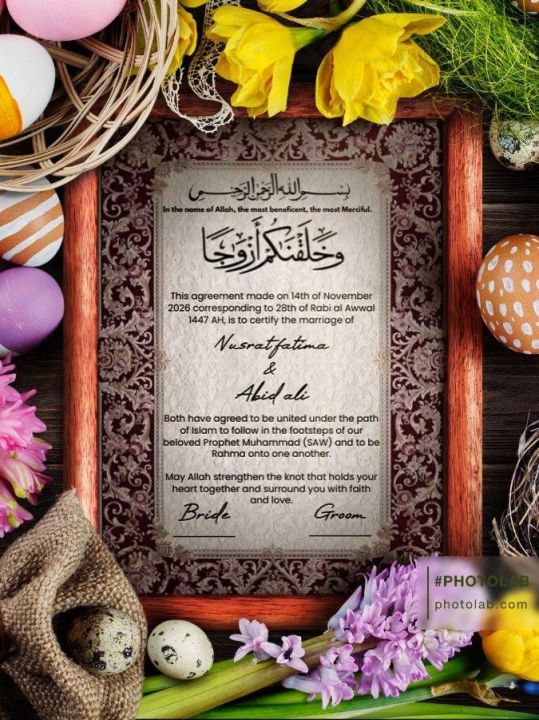 بسم الله الرحمن الرحيم
In the name of Allah, the most beneficent, the most Merciful.
وَخَلَقْنَاكُمْ أَزْوَاجًا
This agreement made on 14th of November
2026 corresponding to 28th of Rabi al Awwal
1447 AH, is to certify the marriage of
Nusrat fatima
&
Abid ali
Both have agreed to be united under the path
of Islam to follow in the footsteps of our
beloved Prophet Muhammad (SAW) and to be
Rahma onto one another.
May Allah strengthen the knot that holds your
heart together and surround you with faith
and love.
Bride Groom
#PHOTOLAB
photolab.com